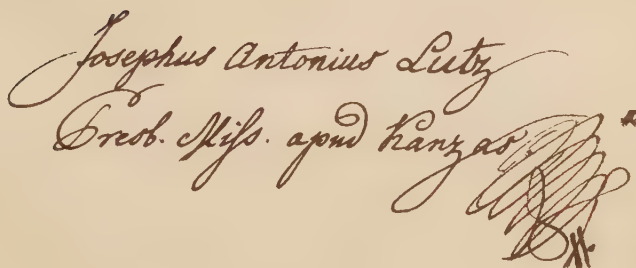 Josephus Antonius Lutz
Presb. Miſs. apud Kanzas